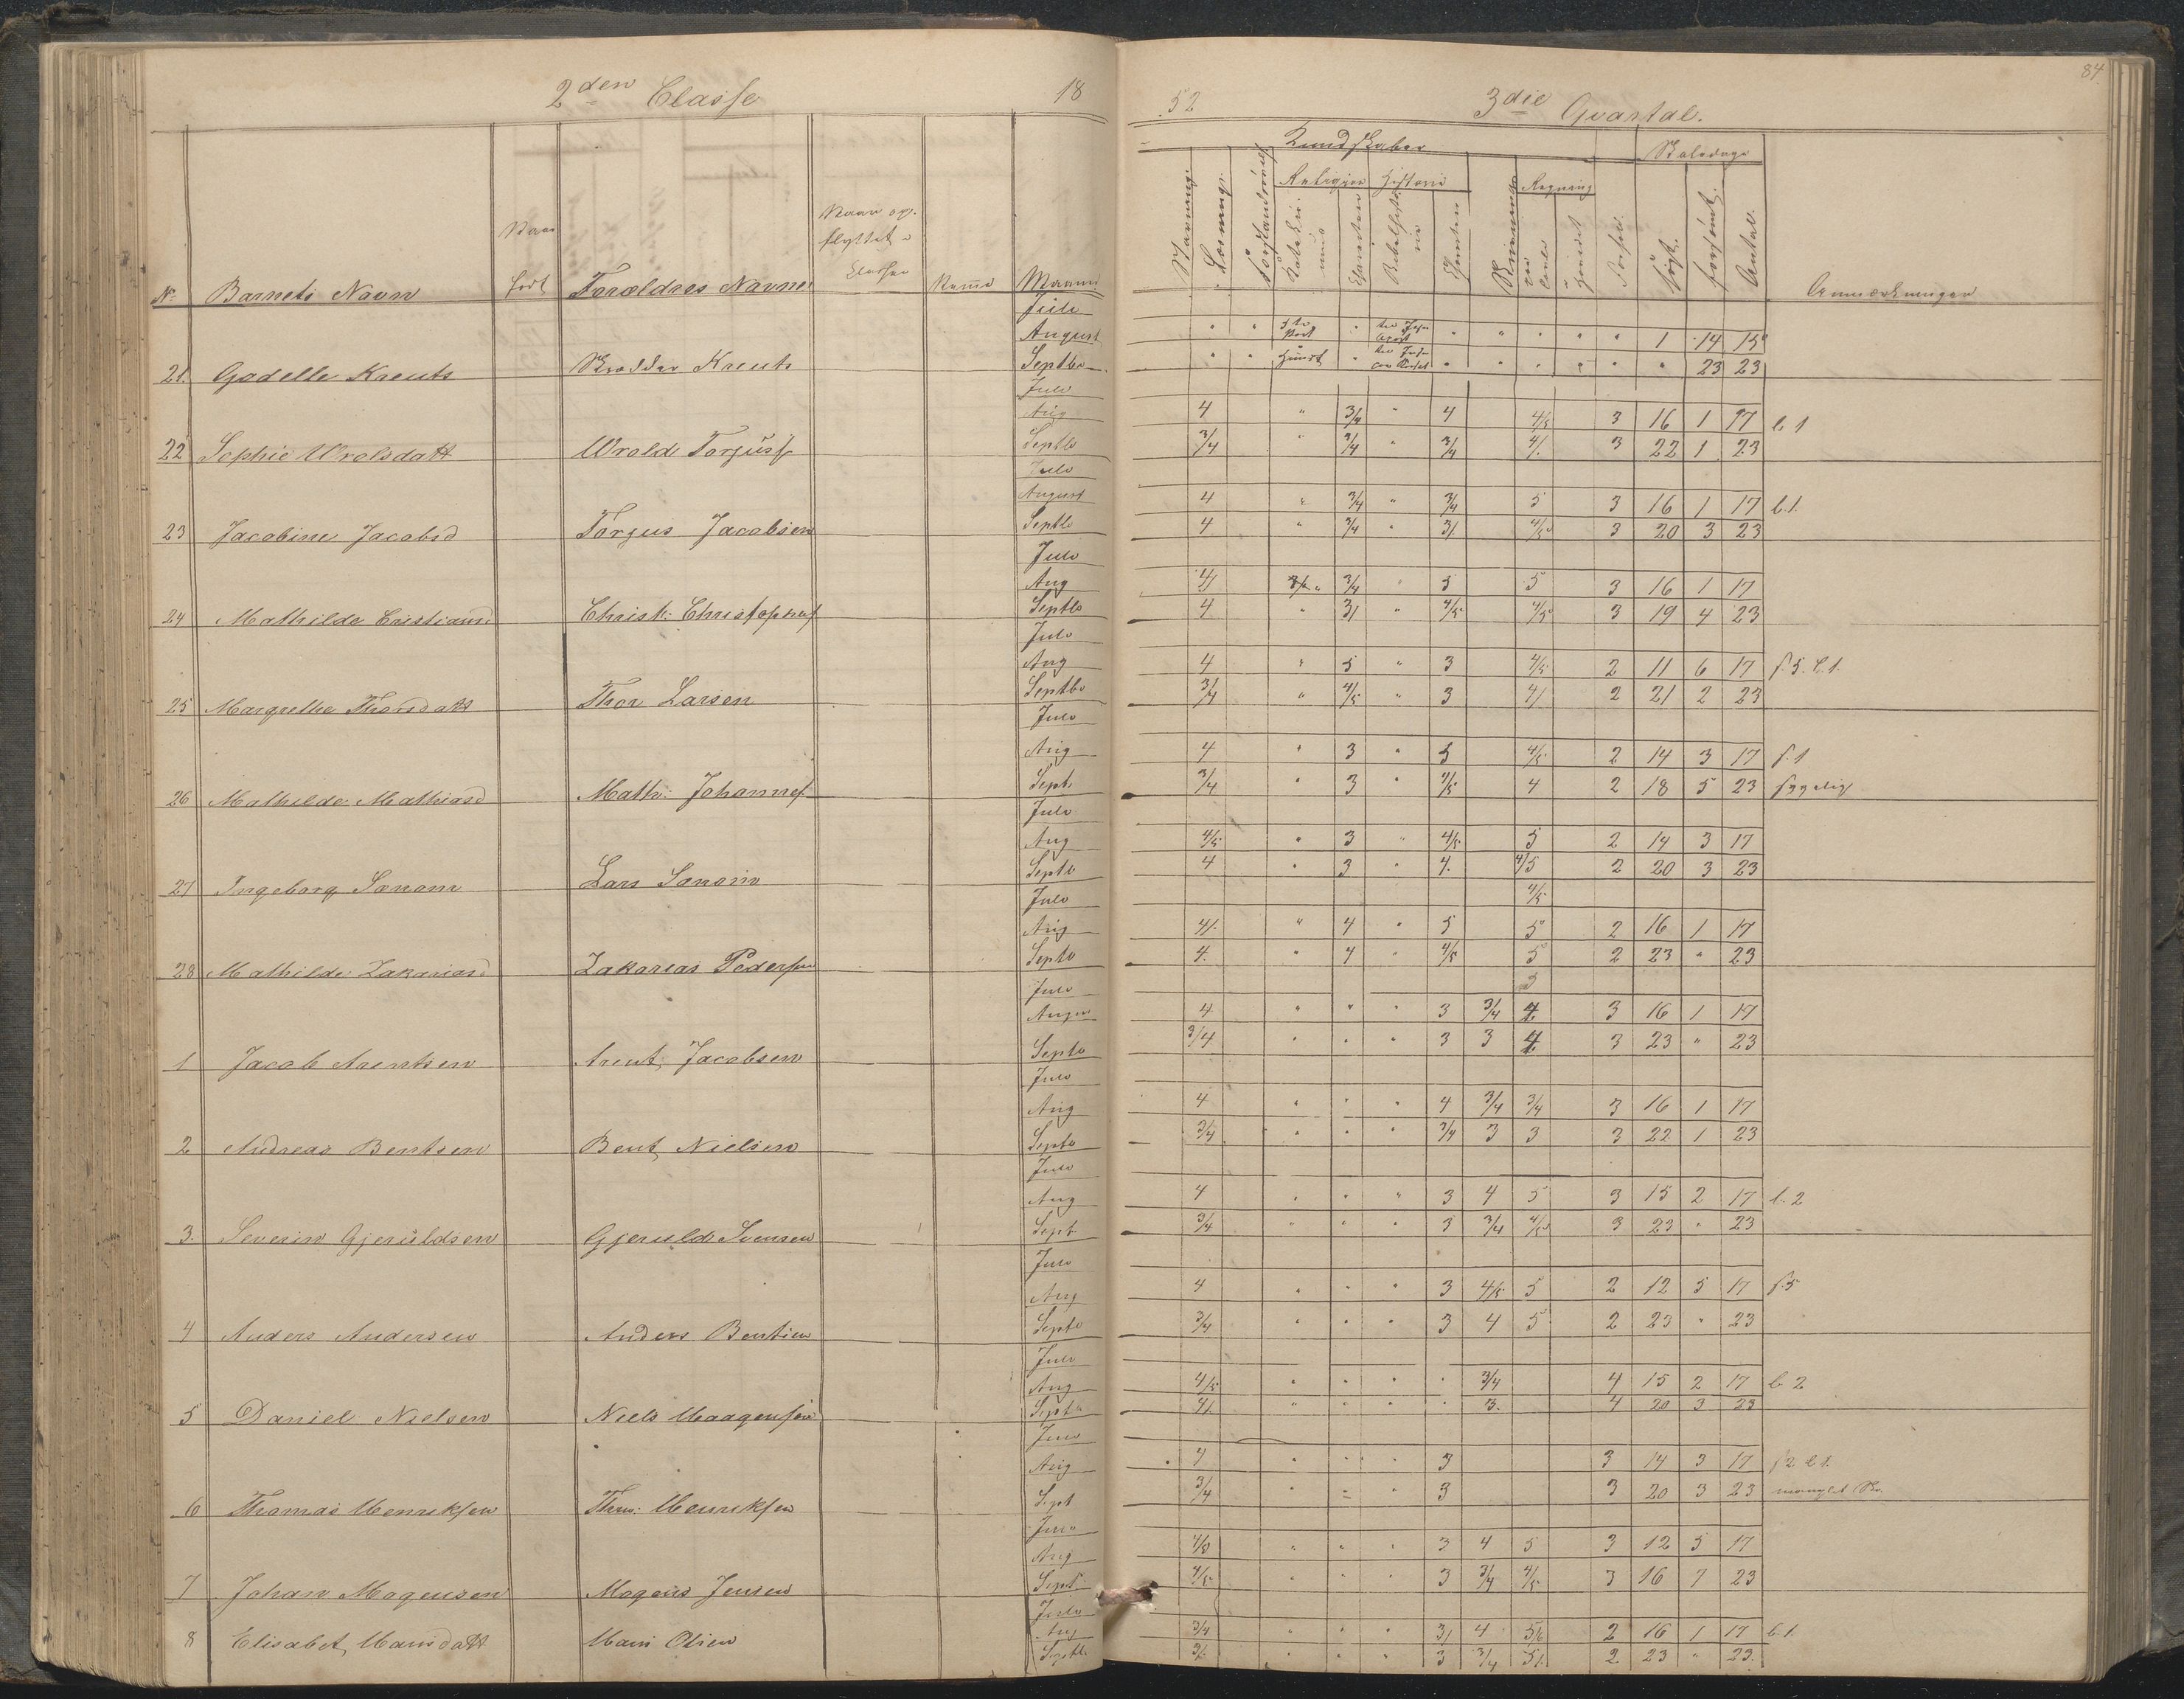 2den Classe 18
52 3die Qvartal.
84.
Kundskaber
Skoledage
Religion Historie Regning
Naar født
Naar op-
flyttet i
Classen
No Barnets Navn Forældres Navne Maaned
Stavning. Læsning. søgt. forsømt. Antal. Anmærkninger
Juli
August 1 14 15
21. Gadelle Kreutz Kreutz Septbr 23 23
Juli
Aug 4 " 3/4 " 4 4/5 3 16 1 17 l. 1
22 Sophie Wrolsdatt Wrold Torjusf Septb 3/4 " 3/4 " 3/4 4/. 3 22 1 23
Juli
August 4 " 3/4 " 3/4 5 3 16 1 17 l. 1.
23 Jacobine Jacobsd Torjus Jacobsen Septb 4 " 3/4 " 3/. 4/5 3 20 3 23
Juli
Aug 4/ 3/4 " 5 5 3 16 1 17
24 Mathilde Cristiansd Christ: Christophersf Septb 4 " 3/ " 4/5 4/5 3 19 4 23
Juli
Aug 4 " 5 " 3 4/5 2 11 6 17 f. 5. l. 1.
25 Margrethe Thorsdatt Thor Larsen Septbr 3/4 " 4/5 " 3 4/ 2 21 2 23
Juli
Aug 4 " 3 " 5 4/5 2 14 3 17 f. 1
26 Mathilde Mathiasd Math: Johannesf Sept. 3/4 " 3 " 4/5 4 2 18 5 23 sygelig
Juli
Aug 4/5 " 3 " 4/5 5 2 14 3 17
27 Ingeborg Lars Septb 4 " 3 " 4. 4/5 2 20 3 23
Juli 4/5
Aug 4/. " 4 " 5 5 2 16 1 17
28 Mathilde Zakariasd Zakarias Pedersen Septb 4. " 4 " 4/5 5 2 23 " 23
Juli 5
August 4 " " " 3 3/4 4 3 16 1 17
1 Jacob Arentsen Arent Jacobsen Septb 3/4 " " " 3 3 4 3 23 " 23
Juli
Aug 4 " " " 4 3/4 3/4 3 16 1 17
2 Andreas Bentsen Bent Nielsen Septb 3/4 " " " 3/4 3 3 3 22 1 23
Juli
Aug 4 " " " 3 4 5 3 15 2 17 l. 2
3. Severin Gjeruldsen Gjeruld Svensen Sept 3/4 " " " 3 3/4 4/5 3 23 " 23
Juli
Aug 4 " " " 3 4/5 5 2 12 5 17 f. 5
4 Anders Andersen Anders Bentsen Septb 3/4 " " " 3 4 5 2 23 " 23
Juli
Aug 4/5 " " " " 3/4 4 15 2 17 l. 2
5 Daniel Nielsen Niels Haagensen Septb 4/. " " " " 3. 4 20 3 23
Juli
Aug 4 " " " 3 3 14 3 17 f 2 l 1.
6 Thomas Henriksen Thm: Henriksen Sept 3/4 " " " 3 3 20 3 23 manglet Sko
Juli
Aug " " " 3 4 5 3 12 5 17
7 Johan Mogensen Mogens Jensen Sept 4/5 " " " 3 3/4 4/5 3 16 7 23
Juli
8 Elisabet Hansdatt Hans Olsen Aug 3/4 " " " 3/ 4 2 16 1 17 l. 1.
Septb 3/. " " " 3 3/4 5/. 2 23 " 23.